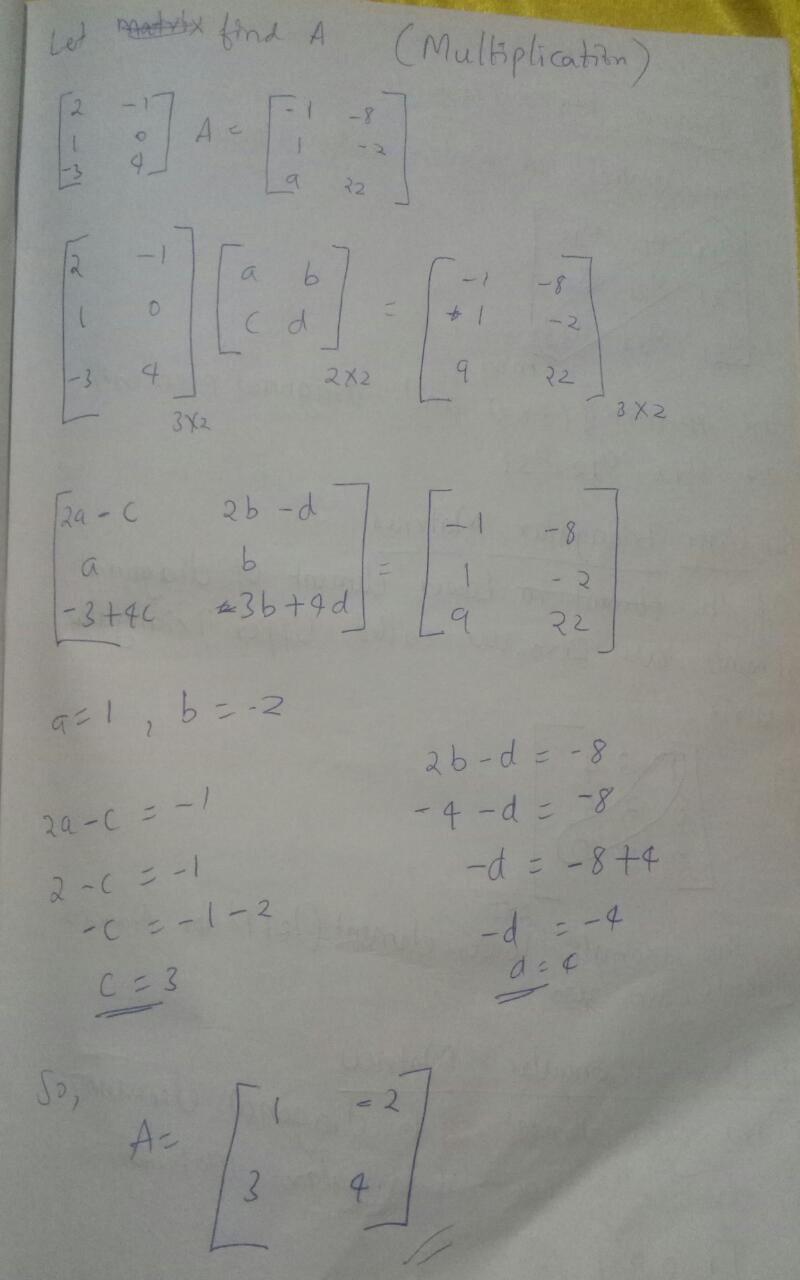 Let find A (Multiplication)
[2 -1; 1 0; -3 4] A = [-1 -8; 1 -2; 9 22]
[2 -1; 1 0; -3 4] 3X2 [a b; c d] 2X2 = [-1 -8; 1 -2; 9 22] 3X2
[2a - c 2b - d; a b; -3+4c -3b+4d] = [-1 -8; 1 -2; 9 22]
a=1, b = -2
2a-c = -1
2-c = -1
-c = -1-2
c = 3
2b-d = -8
-4-d = -8
-d = -8+4
-d = -4
d = 4
So,
A= [1 -2; 3 4]